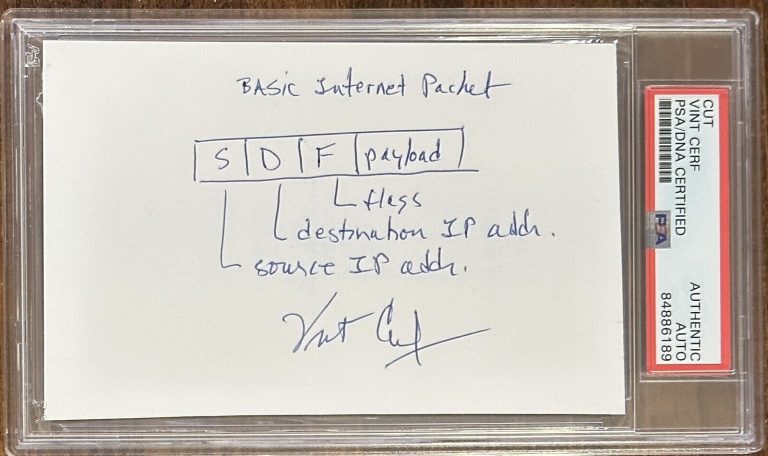 BASIC Internet Packet
S D F payload
flags
destination IP addr.
source IP addr.
Vint Cerf
CUT
VINT CERF
PSA/DNA CERTIFIED
PSA
AUTHENTIC
AUTO
84886189